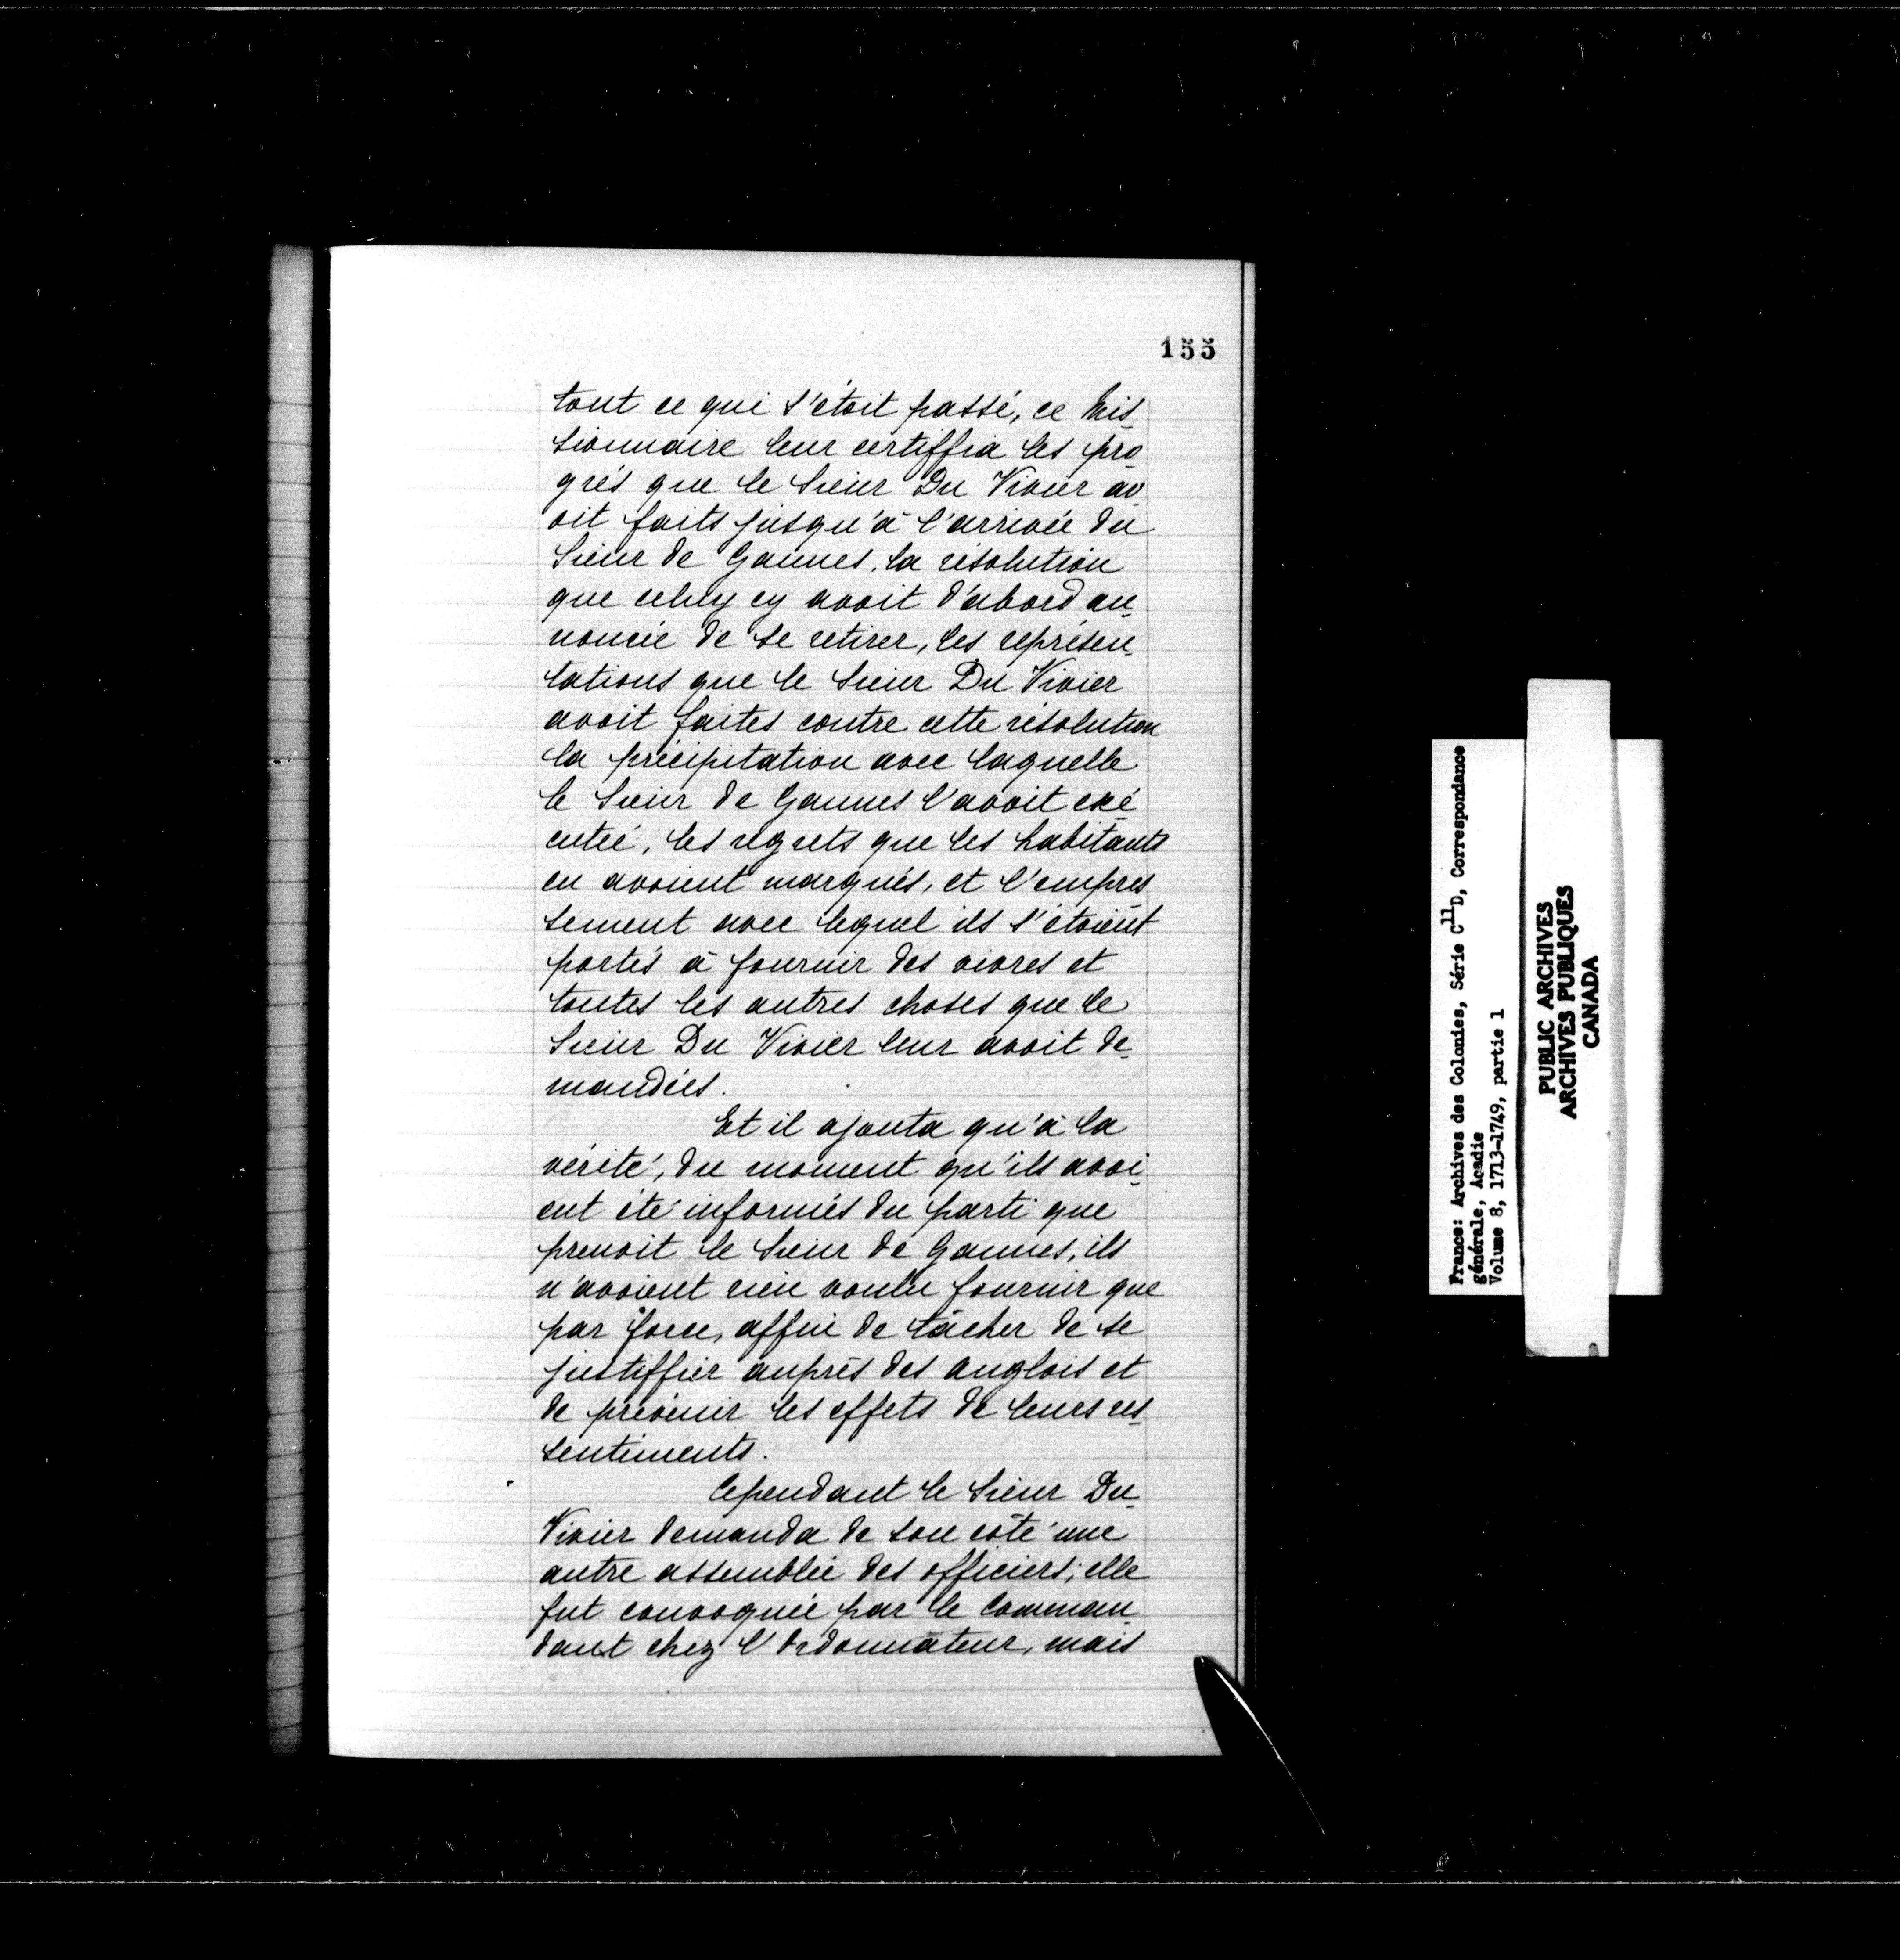 155
tout ce qui s'étoit passé, ce Mis_
sionnaire leur certiffia les pro_
grés que le Sieur Du Vivier av_
oit faits jusqu'à l'arrivée du
Sieur de Gannes, la résolution
que celuy cy avoit d'abord an_
noncée de se retirer, les représen_
tations que le Sieur Du Vivier
avoit faites contre cette résolution
la précipitation avec laquelle
le Sieur de Gannes l'avoit exé_
cutée, les regrets que les habitants
en avoient marqués, et l'empres
sement avec lequel ils s'étoient
portés à fournir des vivres et
toutes les autres choses que le
Sieur Du Vivier leur avoit de_
mandées.
Et il ajouta qu'à la
vérité, du moment qu'ils avoi_
ent été informés du parti que
prenoit le Sieur de Gannes, ils
n'avoient rien voulu fournir que
par force, affin de tâcher de se
justiffier auprès des anglois et
de prévenir les effets de leurs res_
sentiments.
Cependant le Sieur Du_
Vivier demanda de son coté une
autre assemblée des officiers; elle
fut convoquée par le Comman_
dant chez l'Ordonnateur, mais
France: Archives des Colonies, Série C11D, Correspondance
générale, Acadie
Volume 8, 1713-1749, partie 1
PUBLIC ARCHIVES
ARCHIVES PUBLIQUES
CANADA